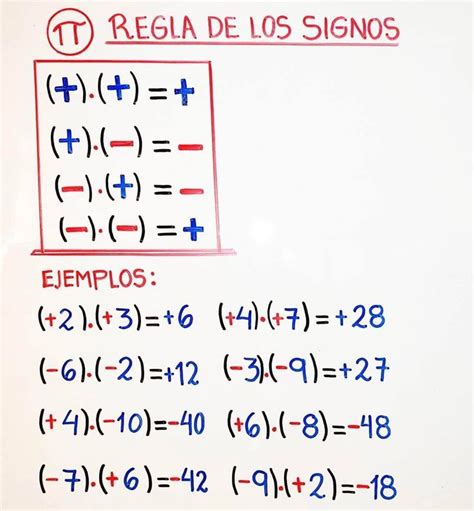 π REGLA DE LOS SIGNOS
(+).(+) = +
(+).(−) = −
(−).(+) = −
(−).(−) = +
EJEMPLOS:
(+2).(+3)=+6 (+4).(+7)=+28
(-6).(-2)=+12 (-3).(-9)=+27
(+4).(-10)=-40 (+6).(-8)=-48
(-7).(+6)=-42 (-9).(+2)=-18